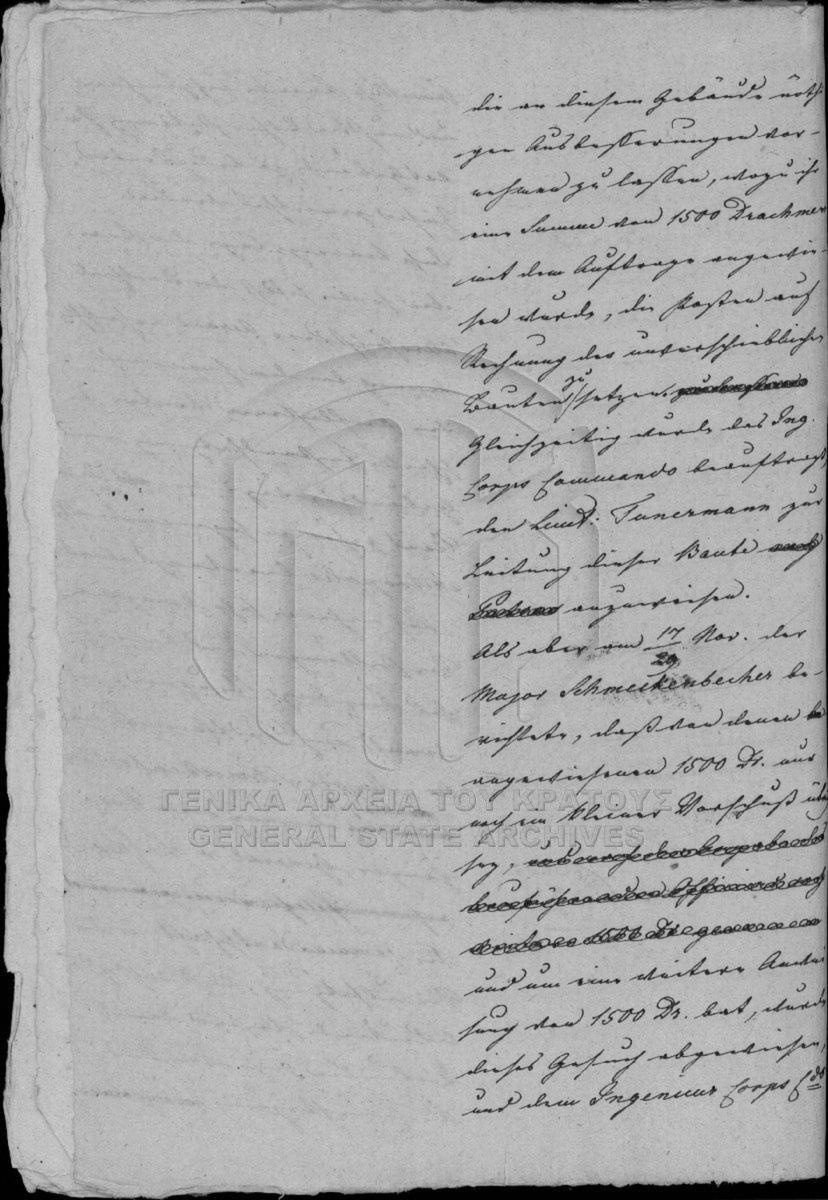 die an diesem Gebäude nöthi-
gen Ausbesserungen vor-
nehmen zu lassen, wozu ihr
eine Summe von 1500 Drachmen
mit dem Auftrage angewie-
sen wurde, die Kosten auf
Rechnung der unverschieblichen
Bauten zu setzen.
Gleichzeitig wurde das Ing.
Corps Commando beauftragt,
den Lieut: Tunermann zur
Leitung dieser Baute
anzuweisen.
Als aber am 17/29 Nov. der
Major Schmeckenbecher be-
richtete, daß von denen
angewiesenen 1500 Dr. nur
noch ein kleiner Vorschuß übrig
sey,
und um eine weitere Anwei
sung von 1500 Dr. bat, wurde
dieses Gesuch abgewiesen,
und dem Ingenieur Corps Cdo
ΓΕΝΙΚΑ ΑΡΧΕΙΑ ΤΟΥ ΚΡΑΤΟΥΣ
GENERAL STATE ARCHIVES